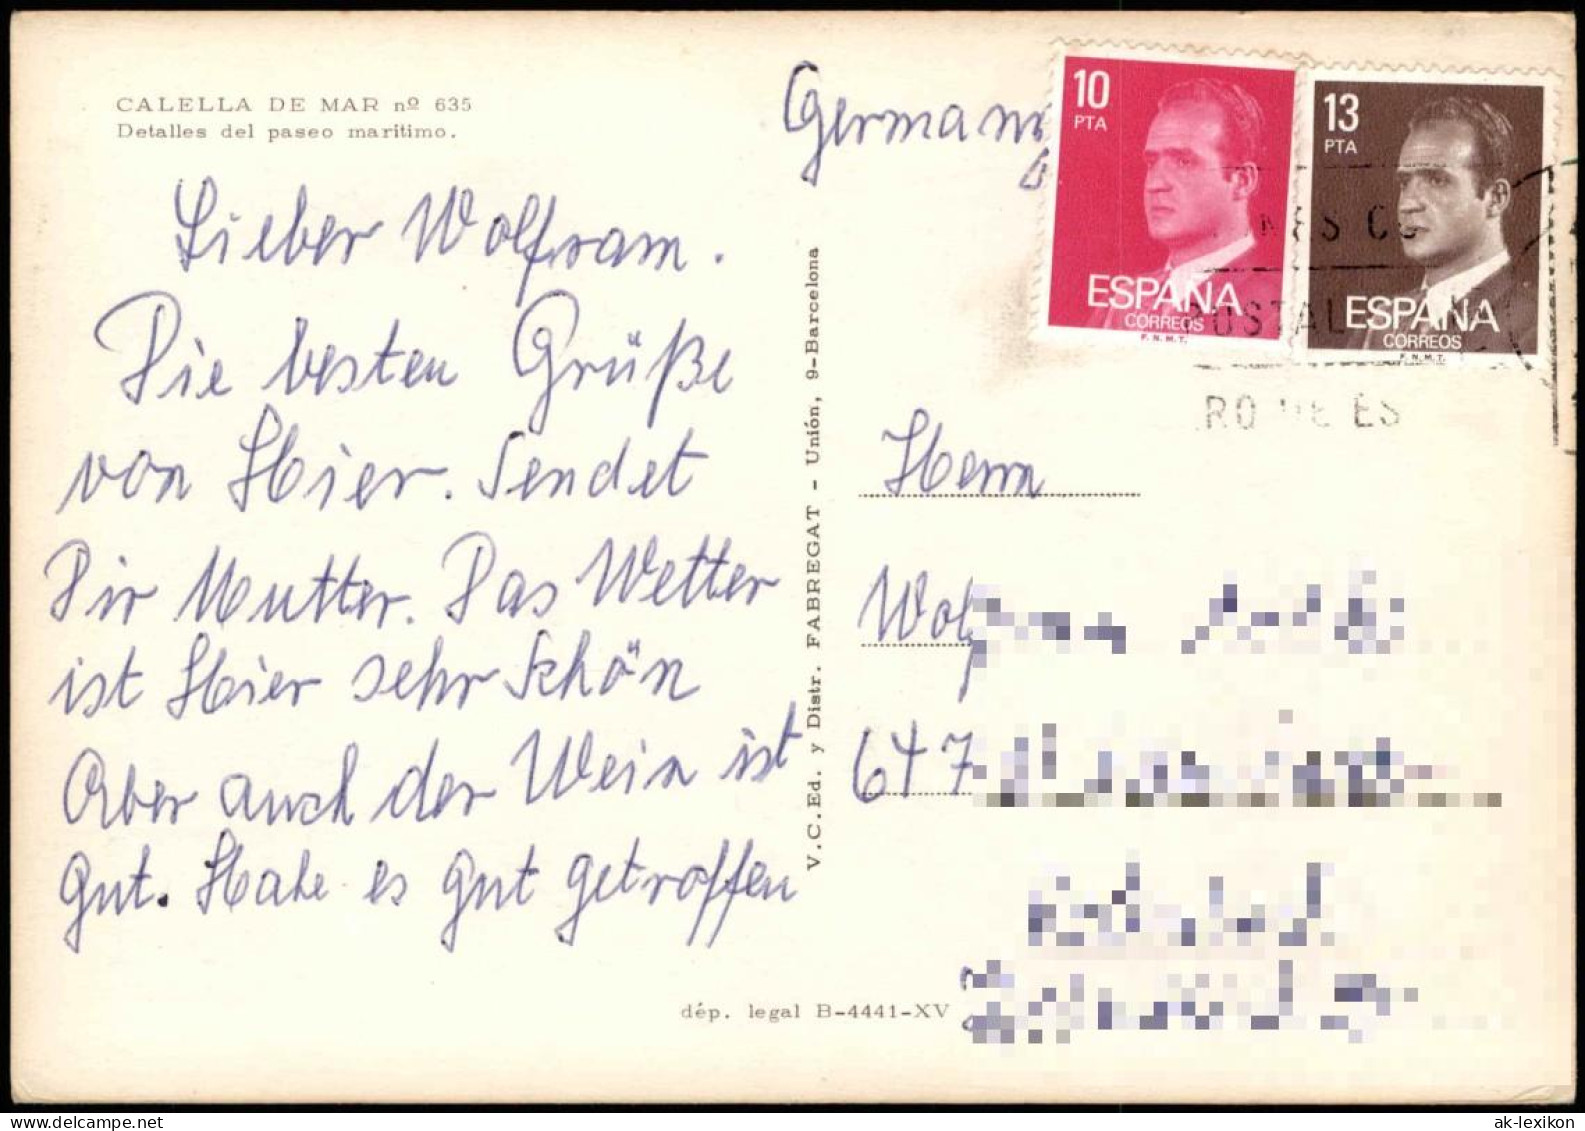 CALELLA DE MAR nº 635
Detalles del paseo maritimo.
Lieber Wolfram.
Die besten Grüße
von Hier. Sendet
Dir Mutter. Das Wetter
ist Hier sehr Schön
Aber auch der Wein ist
gut. Habe es gut getroffen
V.C.Ed. y Distr. FABREGAT - Unión, 9-Barcelona
dép. legal B-4441-XV
Germany
10
PTA
ESPAÑA
CORREOS
F.N.M.T.
13
PTA
ESPAÑA
CORREOS
F.N.M.T.
POSTAL
Herrn
647
ak-lexikon